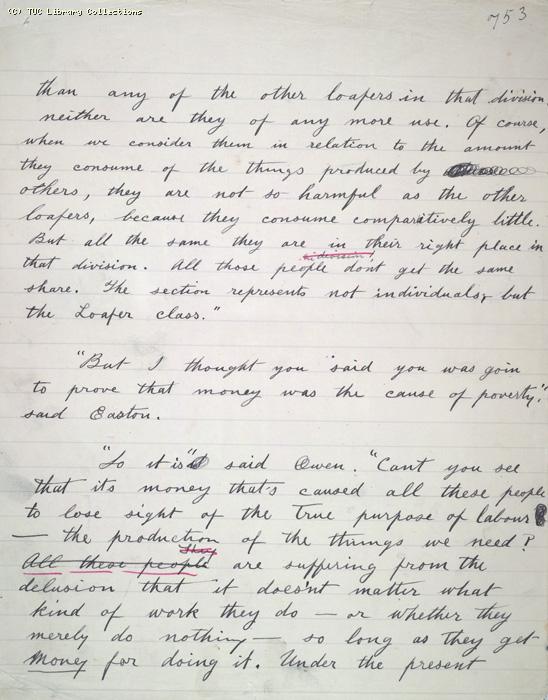 (C) TUC Library Collections
753
than any of the other loafers in that division
neither are they of any more use. Of course,
when we consider them in relation to the amount
they consume of the things produced by
others, they are not so harmful as the other
loafers, because they consume comparitively little.
But all the same they are in their right place in
that division. All those people dont get the same
share. The section represents not individuals, but
the Loafer class."
"But I thought you said you was goin
to prove that money was the cause of poverty."
said Easton.
"So it is" said Owen. "Cant you see
that its money that's caused all these people
to lose sight of the True purpose of labour
— the production of the things we need?
They
All these people are suffering from the
delusion that it does'nt matter what
kind of work they do — or whether they
merely do nothing — so long as they get
money for doing it. Under the present